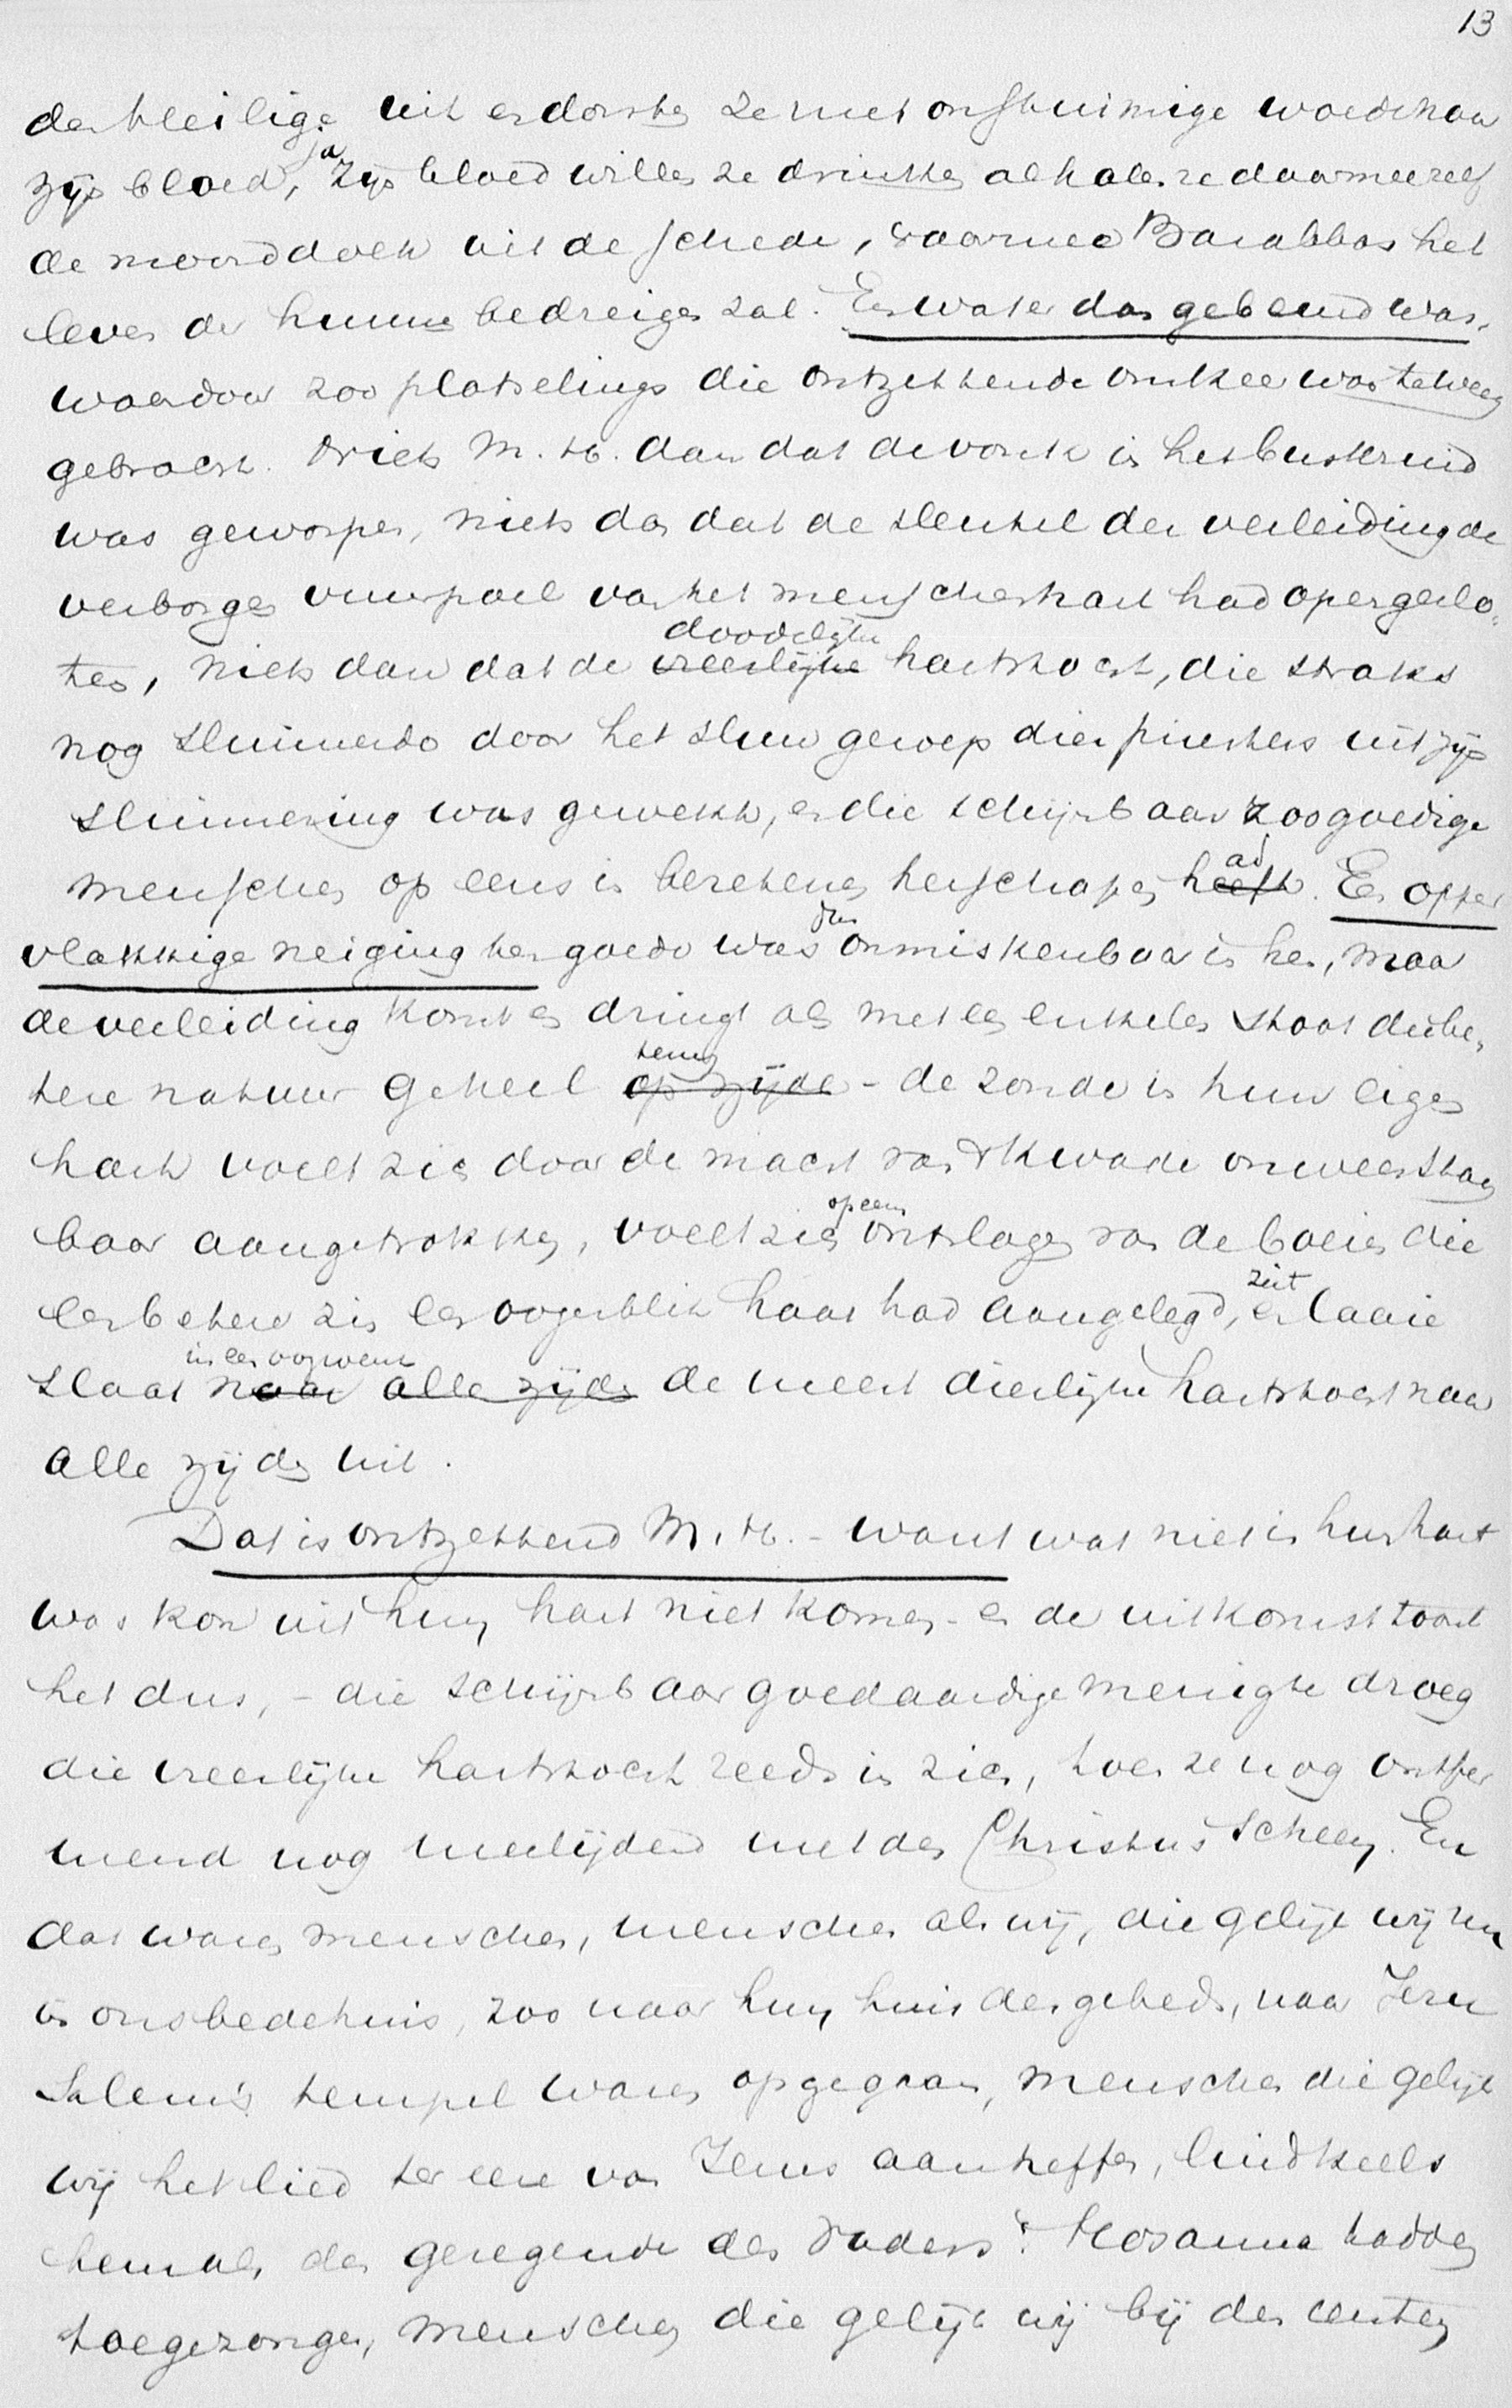 13
den heilige uit en dorsten ze met onstuimige woede naar
zijn bloed, ja zijn bloed willen ze drinken al halen ze daarmee zelf
de moorddolk uit de schede, waarmee Barabbas het
leven der hunne bedreigen zal. En wat er dan gebeurd was,
waardoor zoo plotselings die ontzettende omkeer was teweeg
gebracht. Niets M. H. dan dat de vonk in het buskruid
was geworpen, niets dan dat de sleutel der verleiding de
verborgen vuurpoel van het menschenhart had opengeslo-
ten, niets dan dat de vreeslijke doodelijke hartstocht, die straks
nog sluimerde door het sluw geroep dier priesters uit zijn
sluimering was gewekt, en die schijnbaar zoo goedige
menschen op eens in bezetenen herschapen heeft had. Een opper
vlakkige neiging ten goede was dus onmiskenbaar in hen, maar
de verleiding komt en dringt als met een enkelen stoot die be-
tere natuur geheel op zijde terug - de zonde in hun eigen
hart voelt zich door de macht van 't kwade onweerstaan
baar aangetrokken, voelt zich opeens ontslagen van de boeien die
een betere zin een oogenblik haar had aangelegd, en laaie
slaat naar alle zijden in een oogwenk de meest dierlijke hartstocht naar
alle zijden uit.
Dat is ontzettend M. H. - want wat niet in hun hart
was kon uit hun hart niet komen - en de uitkomst toont
het dus, - die schijnbaar goedaardige menigte droeg
die vreeslijke hartstocht reeds in zich, toen ze nog ontfer
mend nog meelijdend met den Christus scheen. En
dat waren menschen, menschen als wij, die gelijk wij nu
in ons bedehuis, zoo naar hun huis des gebeds, naar Jeru
Salem's tempel waren opgegaan, menschen die gelijk
wij het lied ter eere van Jezus aanheffen, luidkeels
hem als den gezegende des Vaders 't Hosanna hadden
toegezongen, menschen die gelijk wij bij den eersten